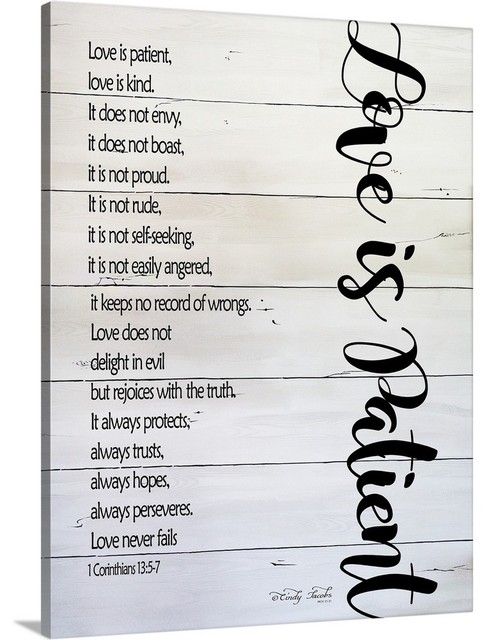 Love is patient,
love is kind.
It does not envy,
it does not boast,
it is not proud.
It is not rude,
it is not self-seeking,
it is not easily angered,
it keeps no record of wrongs.
Love does not
delight in evil
but rejoices with the truth.
It always protects,
always trusts,
always hopes,
always perseveres.
Love never fails
1 Corinthians 13:5-7
Love is Patient
© Cindy Jacobs